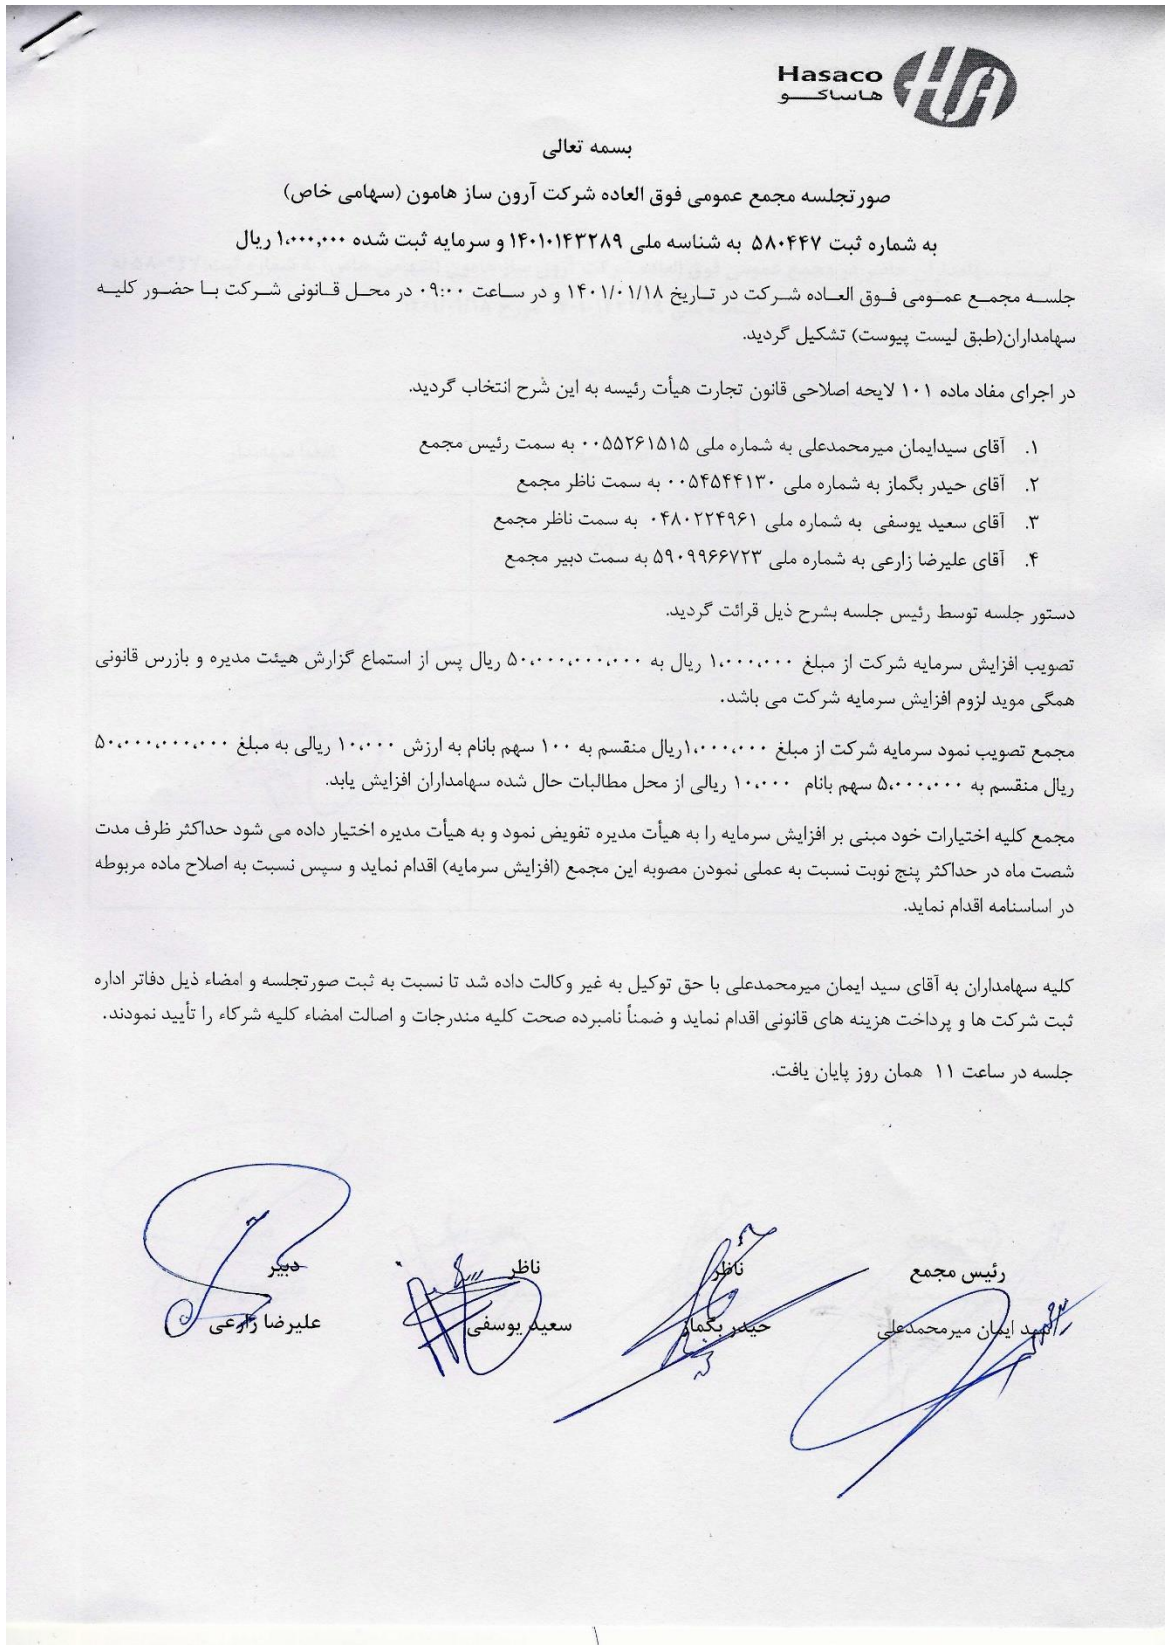 Hasaco
هاساکو
بسمه تعالی
صورتجلسه مجمع عمومی فوق العاده شرکت آرون ساز هامون (سهامی خاص)
به شماره ثبت ۵۸۰۴۴۷ به شناسه ملی ۱۴۰۱۰۱۴۳۲۸۹ و سرمایه ثبت شده ۱،۰۰۰،۰۰۰ ریال
جلسه مجمع عمومی فوق العاده شرکت در تاریخ ۱۴۰۱/۰۱/۱۸ و در ساعت ۰۹:۰۰ در محل قانونی شرکت با حضور کلیه
سهامداران(طبق لیست پیوست) تشکیل گردید.
در اجرای مفاد ماده ۱۰۱ لایحه اصلاحی قانون تجارت هیأت رئیسه به این شرح انتخاب گردید.
۱. آقای سیدایمان میرمحمدعلی به شماره ملی ۰۰۵۵۲۶۱۵۱۵ به سمت رئیس مجمع
۲. آقای حیدر بگماز به شماره ملی ۰۰۵۴۵۴۴۱۳۰ به سمت ناظر مجمع
۳. آقای سعید یوسفی به شماره ملی ۰۴۸۰۲۲۴۹۶۱ به سمت ناظر مجمع
۴. آقای علیرضا زارعی به شماره ملی ۵۹۰۹۹۶۶۷۲۳ به سمت دبیر مجمع
دستور جلسه توسط رئیس جلسه بشرح ذیل قرائت گردید.
تصویب افزایش سرمایه شرکت از مبلغ ۱،۰۰۰،۰۰۰ ریال به ۵۰،۰۰۰،۰۰۰،۰۰۰ ریال پس از استماع گزارش هیئت مدیره و بازرس قانونی
همگی موید لزوم افزایش سرمایه شرکت می باشد.
مجمع تصویب نمود سرمایه شرکت از مبلغ ۱،۰۰۰،۰۰۰ریال منقسم به ۱۰۰ سهم بانام به ارزش ۱۰،۰۰۰ ریالی به مبلغ ۵۰،۰۰۰،۰۰۰،۰۰۰
ریال منقسم به ۵،۰۰۰،۰۰۰ سهم بانام ۱۰،۰۰۰ ریالی از محل مطالبات حال شده سهامداران افزایش یابد.
مجمع کلیه اختیارات خود مبنی بر افزایش سرمایه را به هیأت مدیره تفویض نمود و به هیأت مدیره اختیار داده می شود حداکثر ظرف مدت
شصت ماه در حداکثر پنج نوبت نسبت به عملی نمودن مصوبه این مجمع (افزایش سرمایه) اقدام نماید و سپس نسبت به اصلاح ماده مربوطه
در اساسنامه اقدام نماید.
کلیه سهامداران به آقای سید ایمان میرمحمدعلی با حق توکیل به غیر وکالت داده شد تا نسبت به ثبت صورتجلسه و امضاء ذیل دفاتر اداره
ثبت شرکت ها و پرداخت هزینه های قانونی اقدام نماید و ضمناً نامبرده صحت کلیه مندرجات و اصالت امضاء کلیه شرکاء را تأیید نمودند.
جلسه در ساعت ۱۱ همان روز پایان یافت.
رئیس مجمع ناظر ناظر دبیر
سید ایمان میرمحمدعلی حیدر بگماز سعید یوسفی علیرضا زارعی